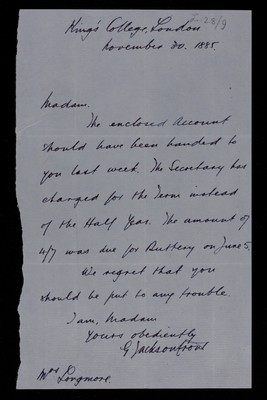 King's College, London
November 30. 1885.
Madam.
The enclosed Account
should have been handed to
you last week. The Secretary has
charged for the Term instead
of the Half Year. The amount of
4/7 was due for Buttery on June 5.
We regret that you
should be put to any trouble.
I am, Madam
Yours obediently
G Jackson
Mrs Longmore.